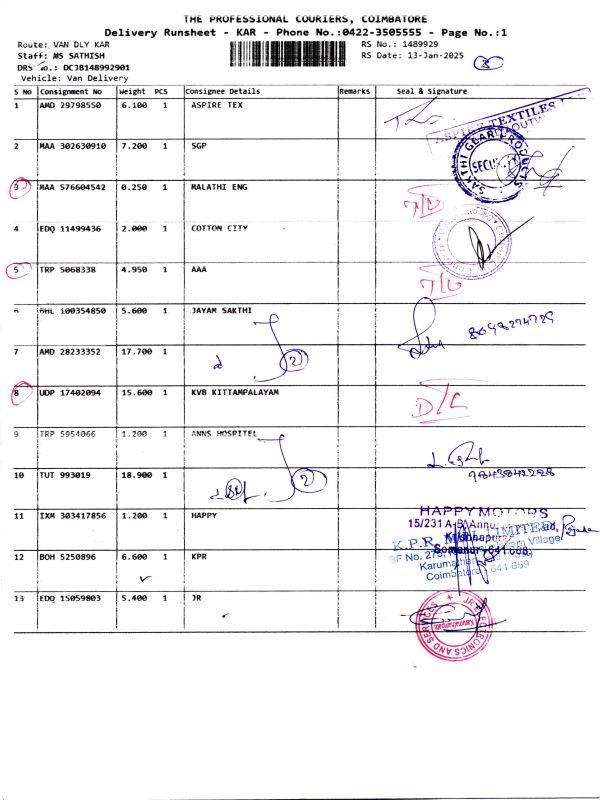 THE PROFESSIONAL COURIERS, COIMBATORE
Delivery Runsheet - KAR - Phone No.:0422-3505555 - Page No.:1
Route: VAN DLY KAR RS No.: 1489929
Staff: MS SATHISH RS Date: 13-Jan-2025
DRS No.: DCJB148992901
Vehicle: Van Delivery
S No Consignment No Weight PCS Consignee Details Remarks Seal & Signature
1 AMD 29798550 6.100 1 ASPIRE TEX
ASPIRE TEXTILES
2 MAA 302630910 7.200 1 SGP
SAKTHI GEAR PRODUCTS
SECURITY
3 MAA 576604542 0.250 1 MALATHI ENG
4 EDQ 11499436 2.000 1 COTTON CITY
5 TRP 5068338 4.950 1 AAA
6 BHL 100354850 5.600 1 JAYAM SAKTHI
7 AMD 28233352 17.700 1
2
8 UDP 17402094 15.600 1 KVB KITTAMPALAYAM
D/L
9 TRP 5954066 1.200 1 ANNS HOSPITEL
10 TUT 993019 18.900 1
2
11 IXM 303417856 1.200 1 HAPPY
HAPPY MOTORS
15/231 A-B, Annur
Somanur-641 668
12 BOH 5250896 6.600 1 KPR
K.P.R. MILL LIMITED
SF No. 273, Village
Karumathampatti
Coimbatore - 641 659
13 EDQ 15059803 5.400 1 JR
JR ELECTRONICS AND SERVICES
Karumathampatti